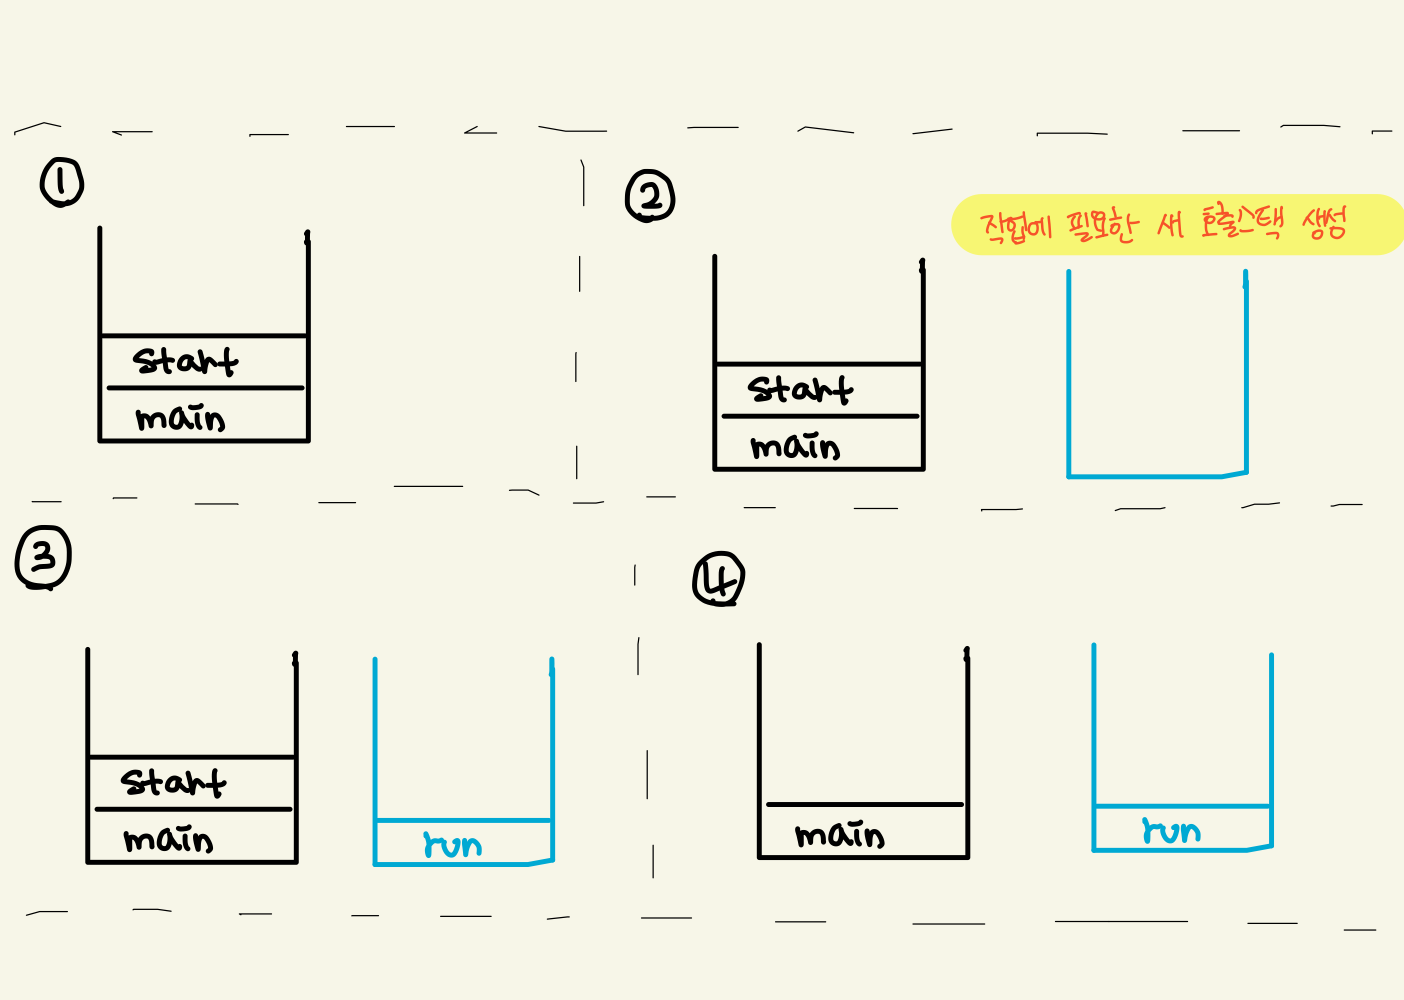 ①
start
main
②
작업에 필요한 새 호출스택 생성
start
main
③
start
main
run
④
main
run